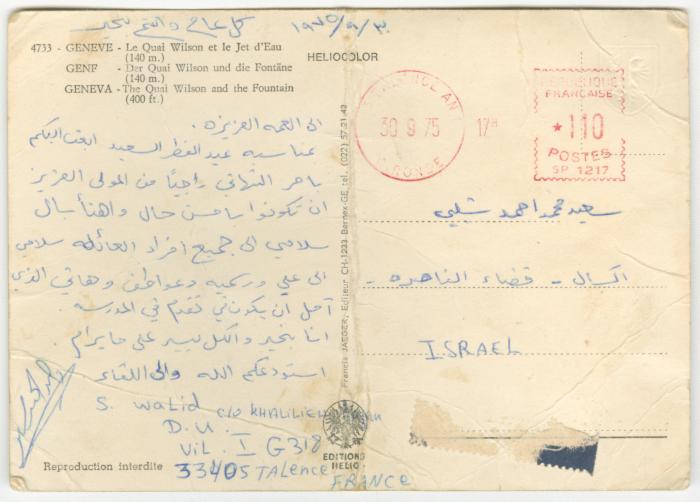 كل عام وانتم بخير ١٩٧٥/٩/٣٠
4733 - GENEVE - Le Quai Wilson et le Jet d'Eau
(140 m.)
GENF - Der Quai Wilson und die Fontäne
(140 m.)
GENEVA - The Quai Wilson and the Fountain
(400 ft.)
HELIOCOLOR
الى العمه العزيزه.
بمناسبه عيد الفطر السعيد ابعث اليكم
باحر التهاني راجيًا من المولى العزيز
ان تكونوا باحسن حال واهنأ بال
سلامي الى جميع افراد العائله سلامي
الى علي ورسميه وعواطف وهاني الذي
آمل ان يكون في تقدم في المدرسه
انا بخير والكل يسير على ما يرام.
استودعكم الله والى اللقاء
S. Walid c/o KHALILIEH
D.U.
ViL. I G318
33405 TALENCE
FRANCE
Reproduction interdite
EDITIONS
HELIO
Francis JAEGER, Editeur CH-1233 Bernex-GE, tel. (022) 57.21.42
30 9 75
17H
GIRONDE
REPUBLIQUE
FRANCAISE
★110
POSTES
SP 1217
سعيد محمد احمد شبلي
اكسال - قضاء الناصره -
ISRAEL